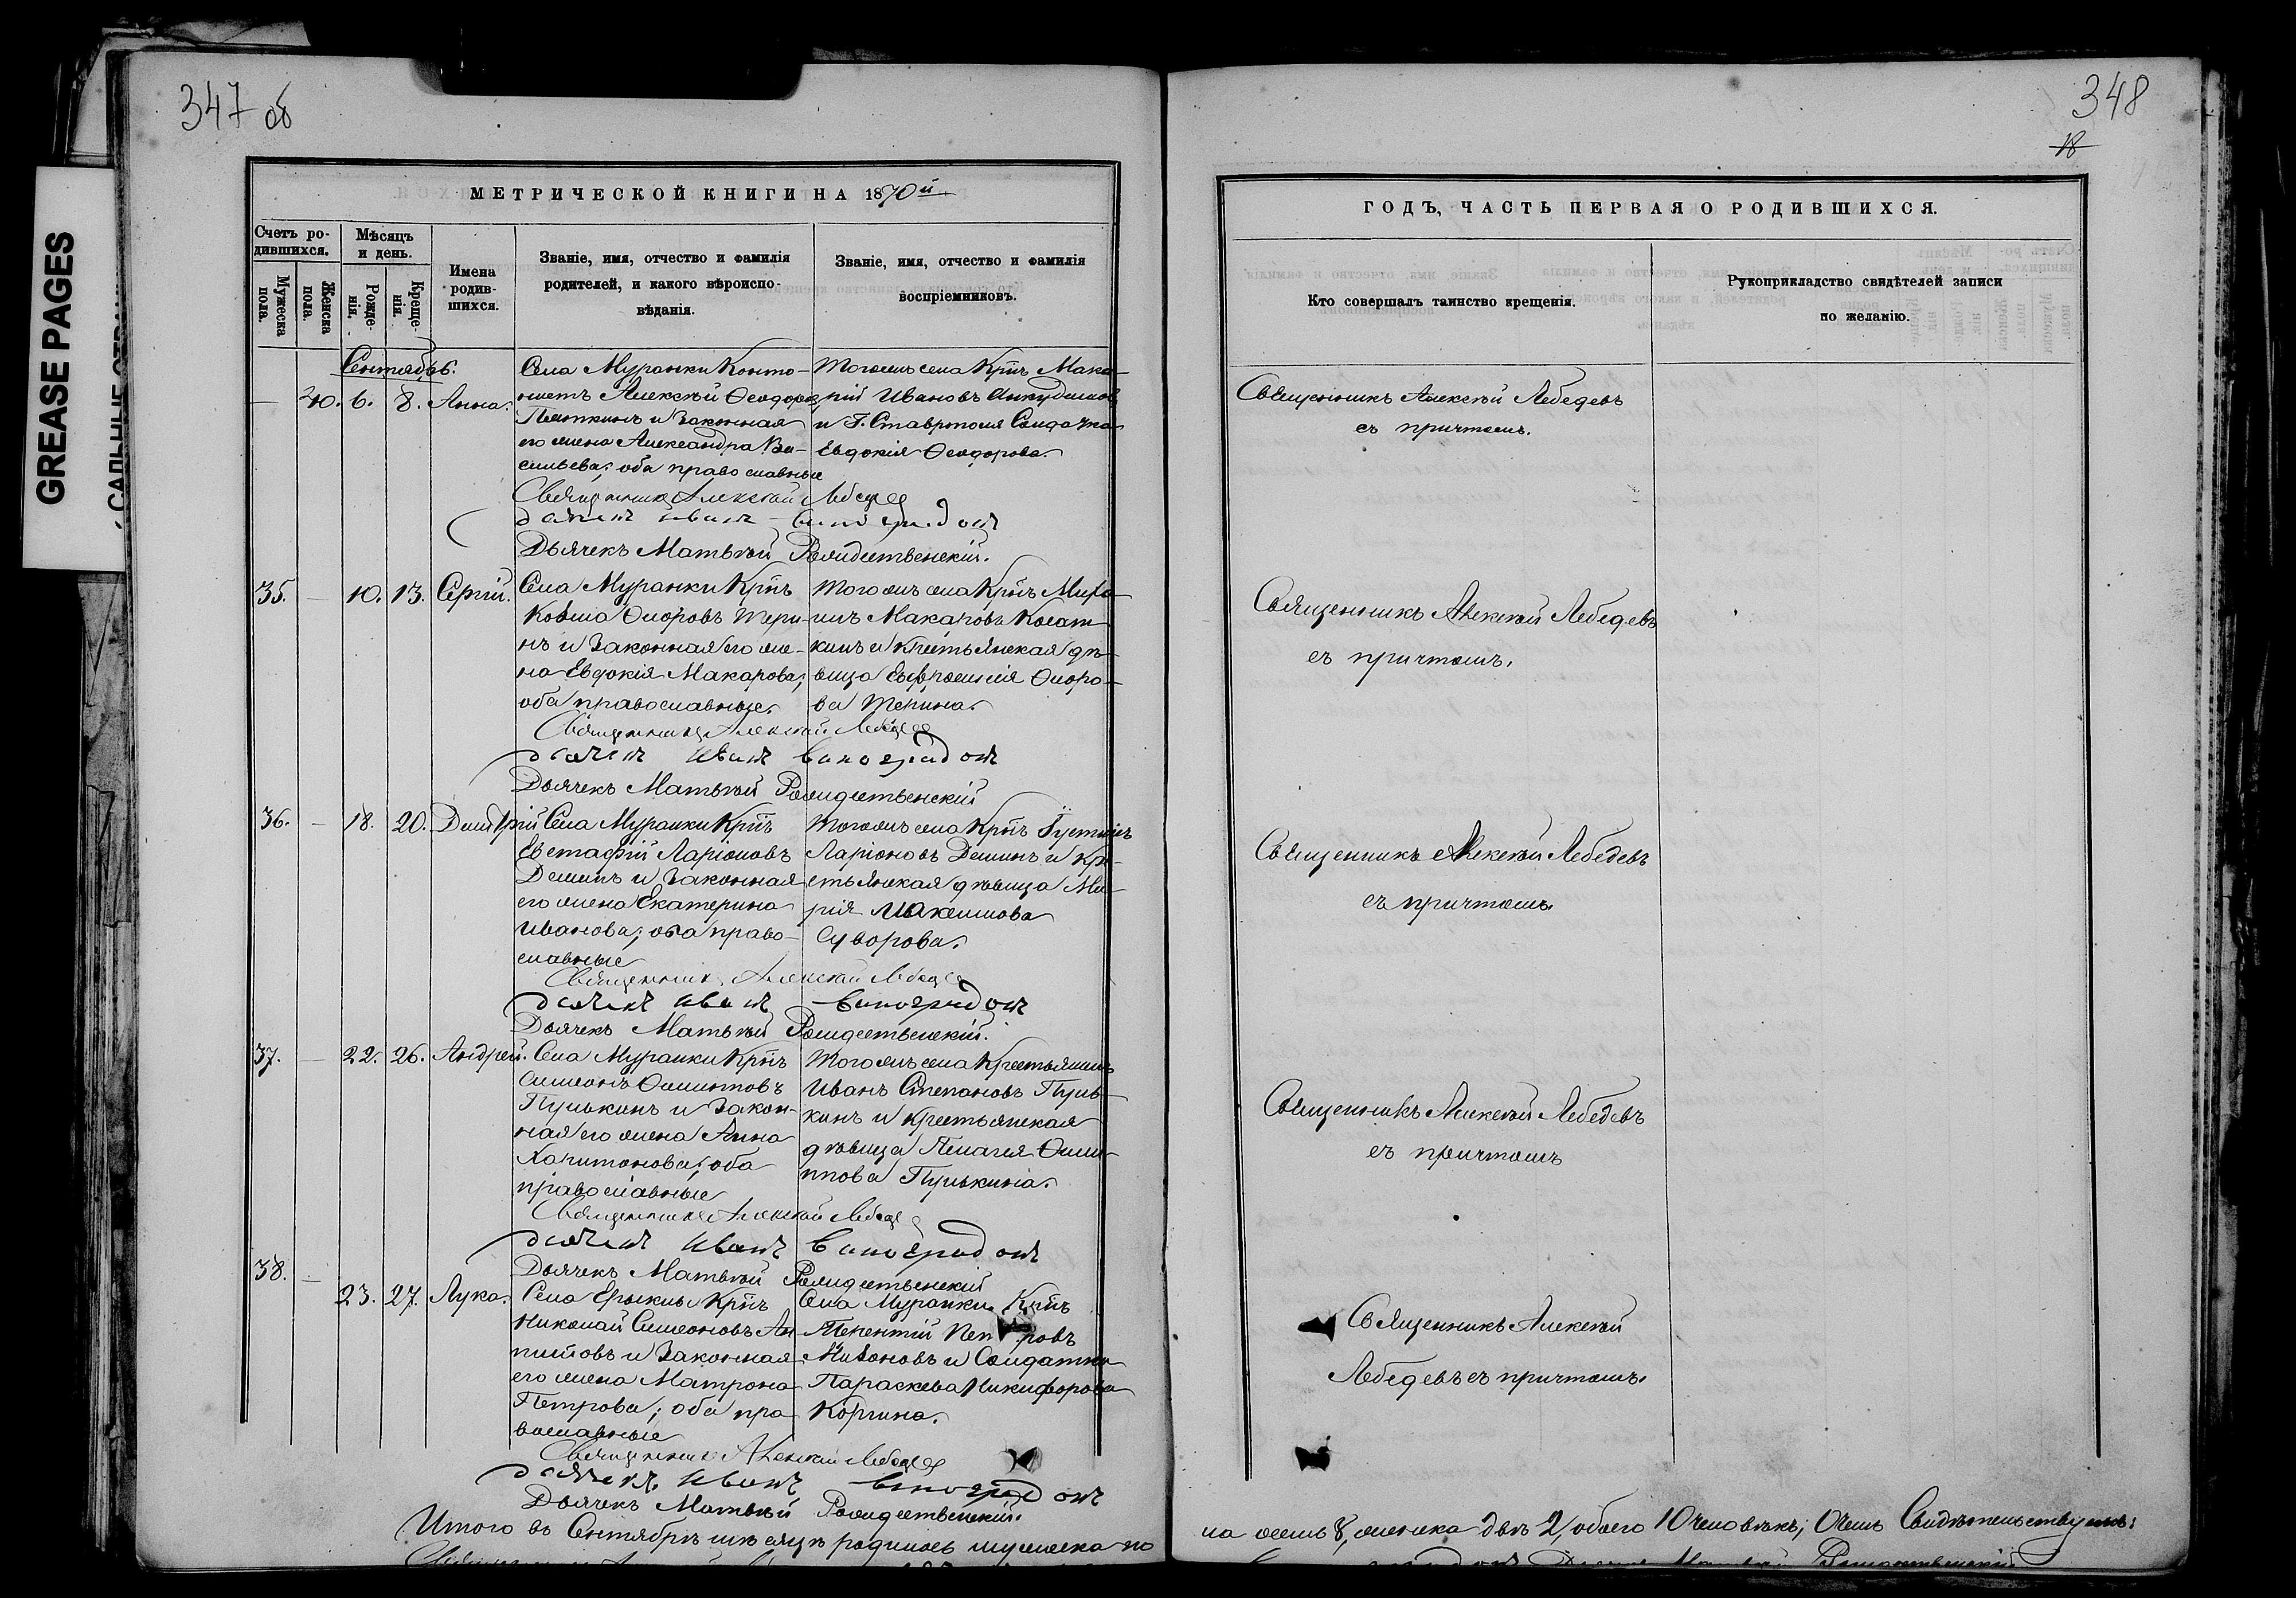 GREASE PAGES
347 об
МЕТРИЧЕСКОЙ КНИГИ НА 1870й
Счетъ ро-
дившихся.
Мужеска пола.
Женска пола.
Мѣсяцъ
и день.
Рожде-
нія.
Креще-
нія.
Имена
родив-
шихся.
Званіе, имя, отчество и фамилія
родителей, и какого вѣроиспо-
вѣданія.
Званіе, имя, отчество и фамилія
воспріемниковъ.
Сентябрь.
6. 8. Анна.
Села Муранки Конто-
нистъ Алексѣй Ѳеодоров
и Законная
его жена Александра Ва-
сильева; оба православные
Тогожъ села Крнъ Мака-
рій Ивановъ Анкудиновъ
и Г. Ставрополя Солдатка
Евдокія Ѳеодорова.
Священникъ Алексѣй Лебедев
дьячекъ Иванъ Виноградовъ
Дьячекъ Матвѣй Рождественскій.
35. – 10. 13. Сергій.
Села Муранки Крнъ
Козма Ѳлоровъ Тери-
нъ и Законная его же-
на Евдокія Макарова;
оба православные.
Тогожъ села Крнъ Миха-
илъ Макаровъ Косат-
кинъ и Крестьянская дѣ-
вица Евфросинія Ѳлоро-
ва Терина.
Священникъ Алексѣй Лебедев
дьячекъ Иванъ Виноградовъ
Дьячекъ Матвѣй Рождественскій
36. – 18. 20. Димитрій
Села Муранки Крнъ
Евстафій Ларіоновъ
Деминъ и Законная
его жена Екатерина
Иванова; оба право-
славные
Тогожъ села Крнъ Іустинъ
Ларіоновъ Деминъ и Кре-
стьянская дѣвица Ма-
рія Максимова
Суворова.
Священникъ Алексѣй Лебедев
дьячекъ Иванъ Виноградовъ
Дьячекъ Матвѣй Рождественскій.
37. – 22. 26. Андрей.
Села Муранки Крнъ
Симеонъ Ѳилиповъ
Пулькинъ и Закон-
ная его жена Анна
Харитонова; оба
православные
Тогожъ села Крестьянинъ
Иванъ Степановъ Пуль-
кинъ и Крестьянская
дѣвица Пелагея Ѳили-
ппова Пулькина.
Священникъ Алексѣй Лебедев
дьячекъ Иванъ Виноградовъ
Дьячекъ Матвѣй Рождественскій
38. – 23. 27. Лука.
Крнъ
Николай Симеоновъ Ан-
типовъ и Законная
его жена Матрона
Петрова; оба пра-
вославные
Села Муранки Крнъ
Терентій Петровъ
и Солдатка
Параскева Никифорова
Коргина.
Священникъ Алексѣй Лебедев
дьячекъ Иванъ Виноградовъ
Дьячекъ Матвѣй Рождественскій.
Итого въ Сентябрѣ мѣсяцѣ родилось мужеска по
348
18
ГОДЪ, ЧАСТЬ ПЕРВАЯ О РОДИВШИХСЯ.
Кто совершалъ таинство крещенія.
Рукоприкладство свидѣтелей записи
по желанію.
Священникъ Алексѣй Лебедевъ
съ причтомъ.
Священникъ Алексѣй Лебедевъ
съ причтомъ.
Священникъ Алексѣй Лебедевъ
съ причтомъ.
Священникъ Алексѣй Лебедевъ
съ причтомъ
Священникъ Алексѣй
Лебедевъ съ причтомъ.
ла осмь 8, женска двѣ 2, обоего 10 человѣкъ; о чемъ Свидѣтельствуемъ: